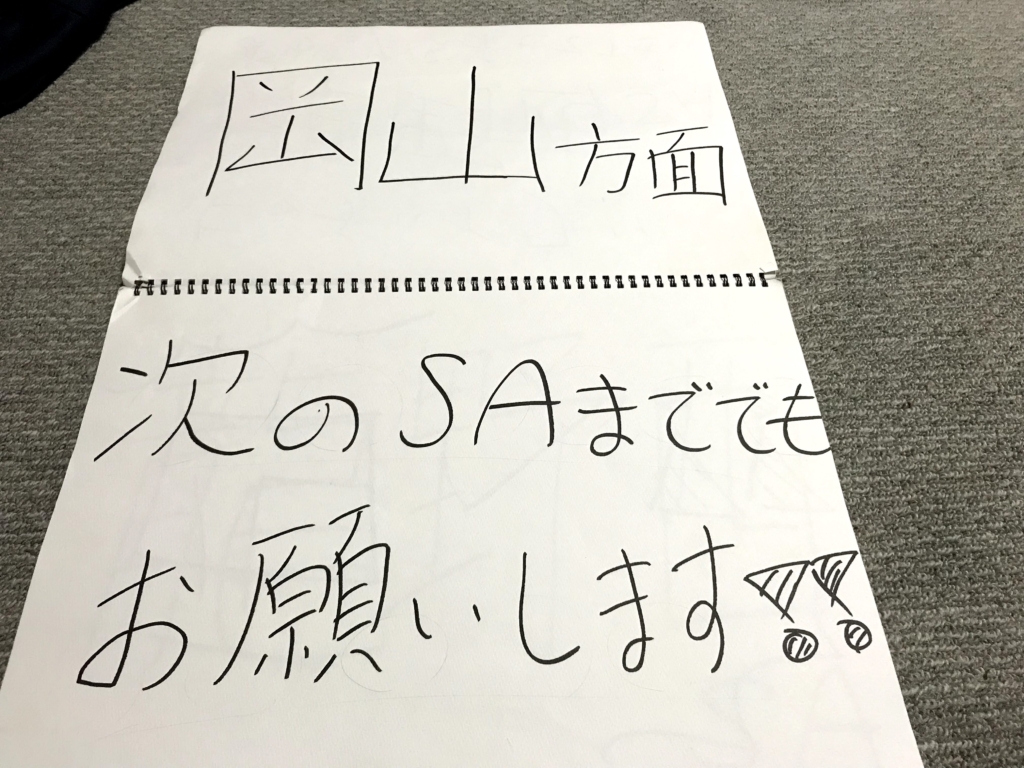 岡山方面
次のSAまででも
お願いします!!